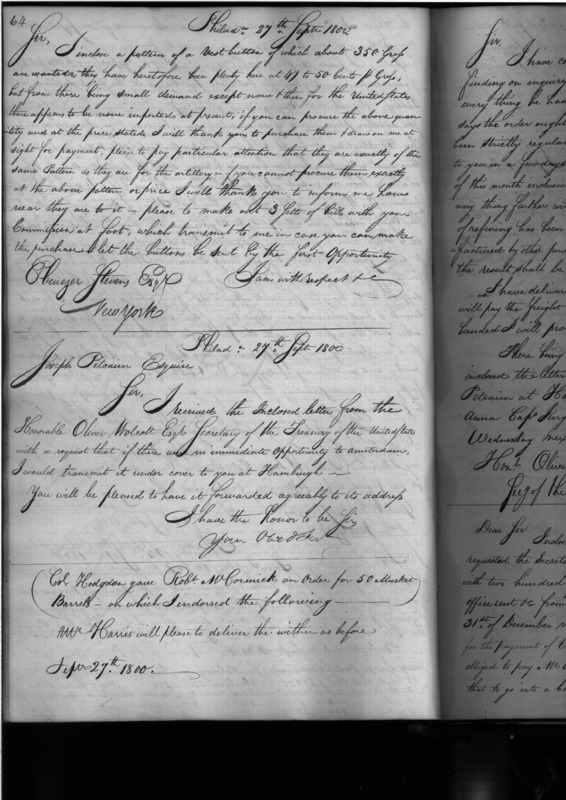 64
Philada 27th Septr 1800
Sir,
I inclose a pattern of a vest button of which about 350 Gross
are wanted, they have heretofore been plenty here at 49 to 50 Cents p Gross,
but from there being small demand except now & then for the United States
there appears to be none imported at present, if you can procure the above quan
tity and at the price stated I will thank you to purchase them & draw on me at
sight for payment, please to pay particular attention that they are exactly of the
same Pattern as they are for the artillery — if you cannot procure them exactly
at the above pattern or price I will thank you to inform me how
near they are to it — please to make out 3 setts of Bills with your
Commission at foot, which transmit to me in case you can make
the purchase — let the buttons be sent by the first Opportunity
Ebenezer Stevens Esqr I am with respect &c
New York
Philada 27th Septr 1800
Joseph Pitcairn Esquire
Sir, I received the Inclosed letter from the
Honorable Oliver Wolcott Esqr Secretary of the Treasury of the United States
with a request that if there was no immediate Opportunity to Amsterdam,
I would transmit it under cover to you at Hamburgh —
You will be pleased to have it forwarded agreeably to its address
I have the honor to be Sir
Your Obt & Hr
(Col Hodgdon gave Robt McCormick an Order for 50 Musket
Barrels — on which I endorsed the following —)
Mr Harris will please to deliver the within as before
Sepr 27th 1800. —
Sir,
I have
finding on enquiry
every thing be had
says the order ought
been strictly regular
to you in a few days
of this month inclusive
any thing further
of refining has been
factured by other
the result shall be
I have
will pay the freight
landed I will
There being
inclosed the letter
Pitcairn at
Anna Capt
Wednesday next
Honl Oliver
Secy of the
Dear Sir Inclos
requested the Secret
with two hundred
officer rent &c from
31st of December
for the payment of
obliged to pay Mr
that to go into a